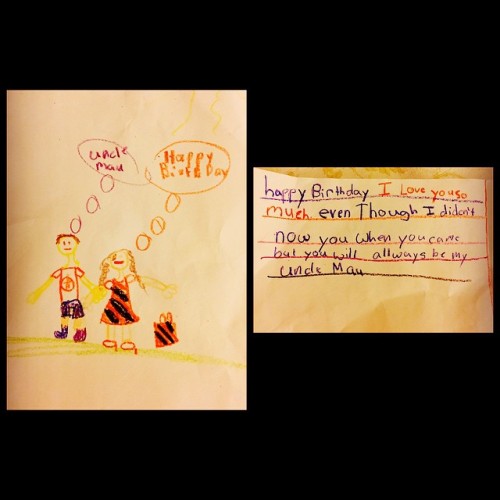 uncle
mau
Happy
Birthday
happy Birthday I Love you so
much even Though I didon't
now you when you came
but you will allways be my
uncle Mau